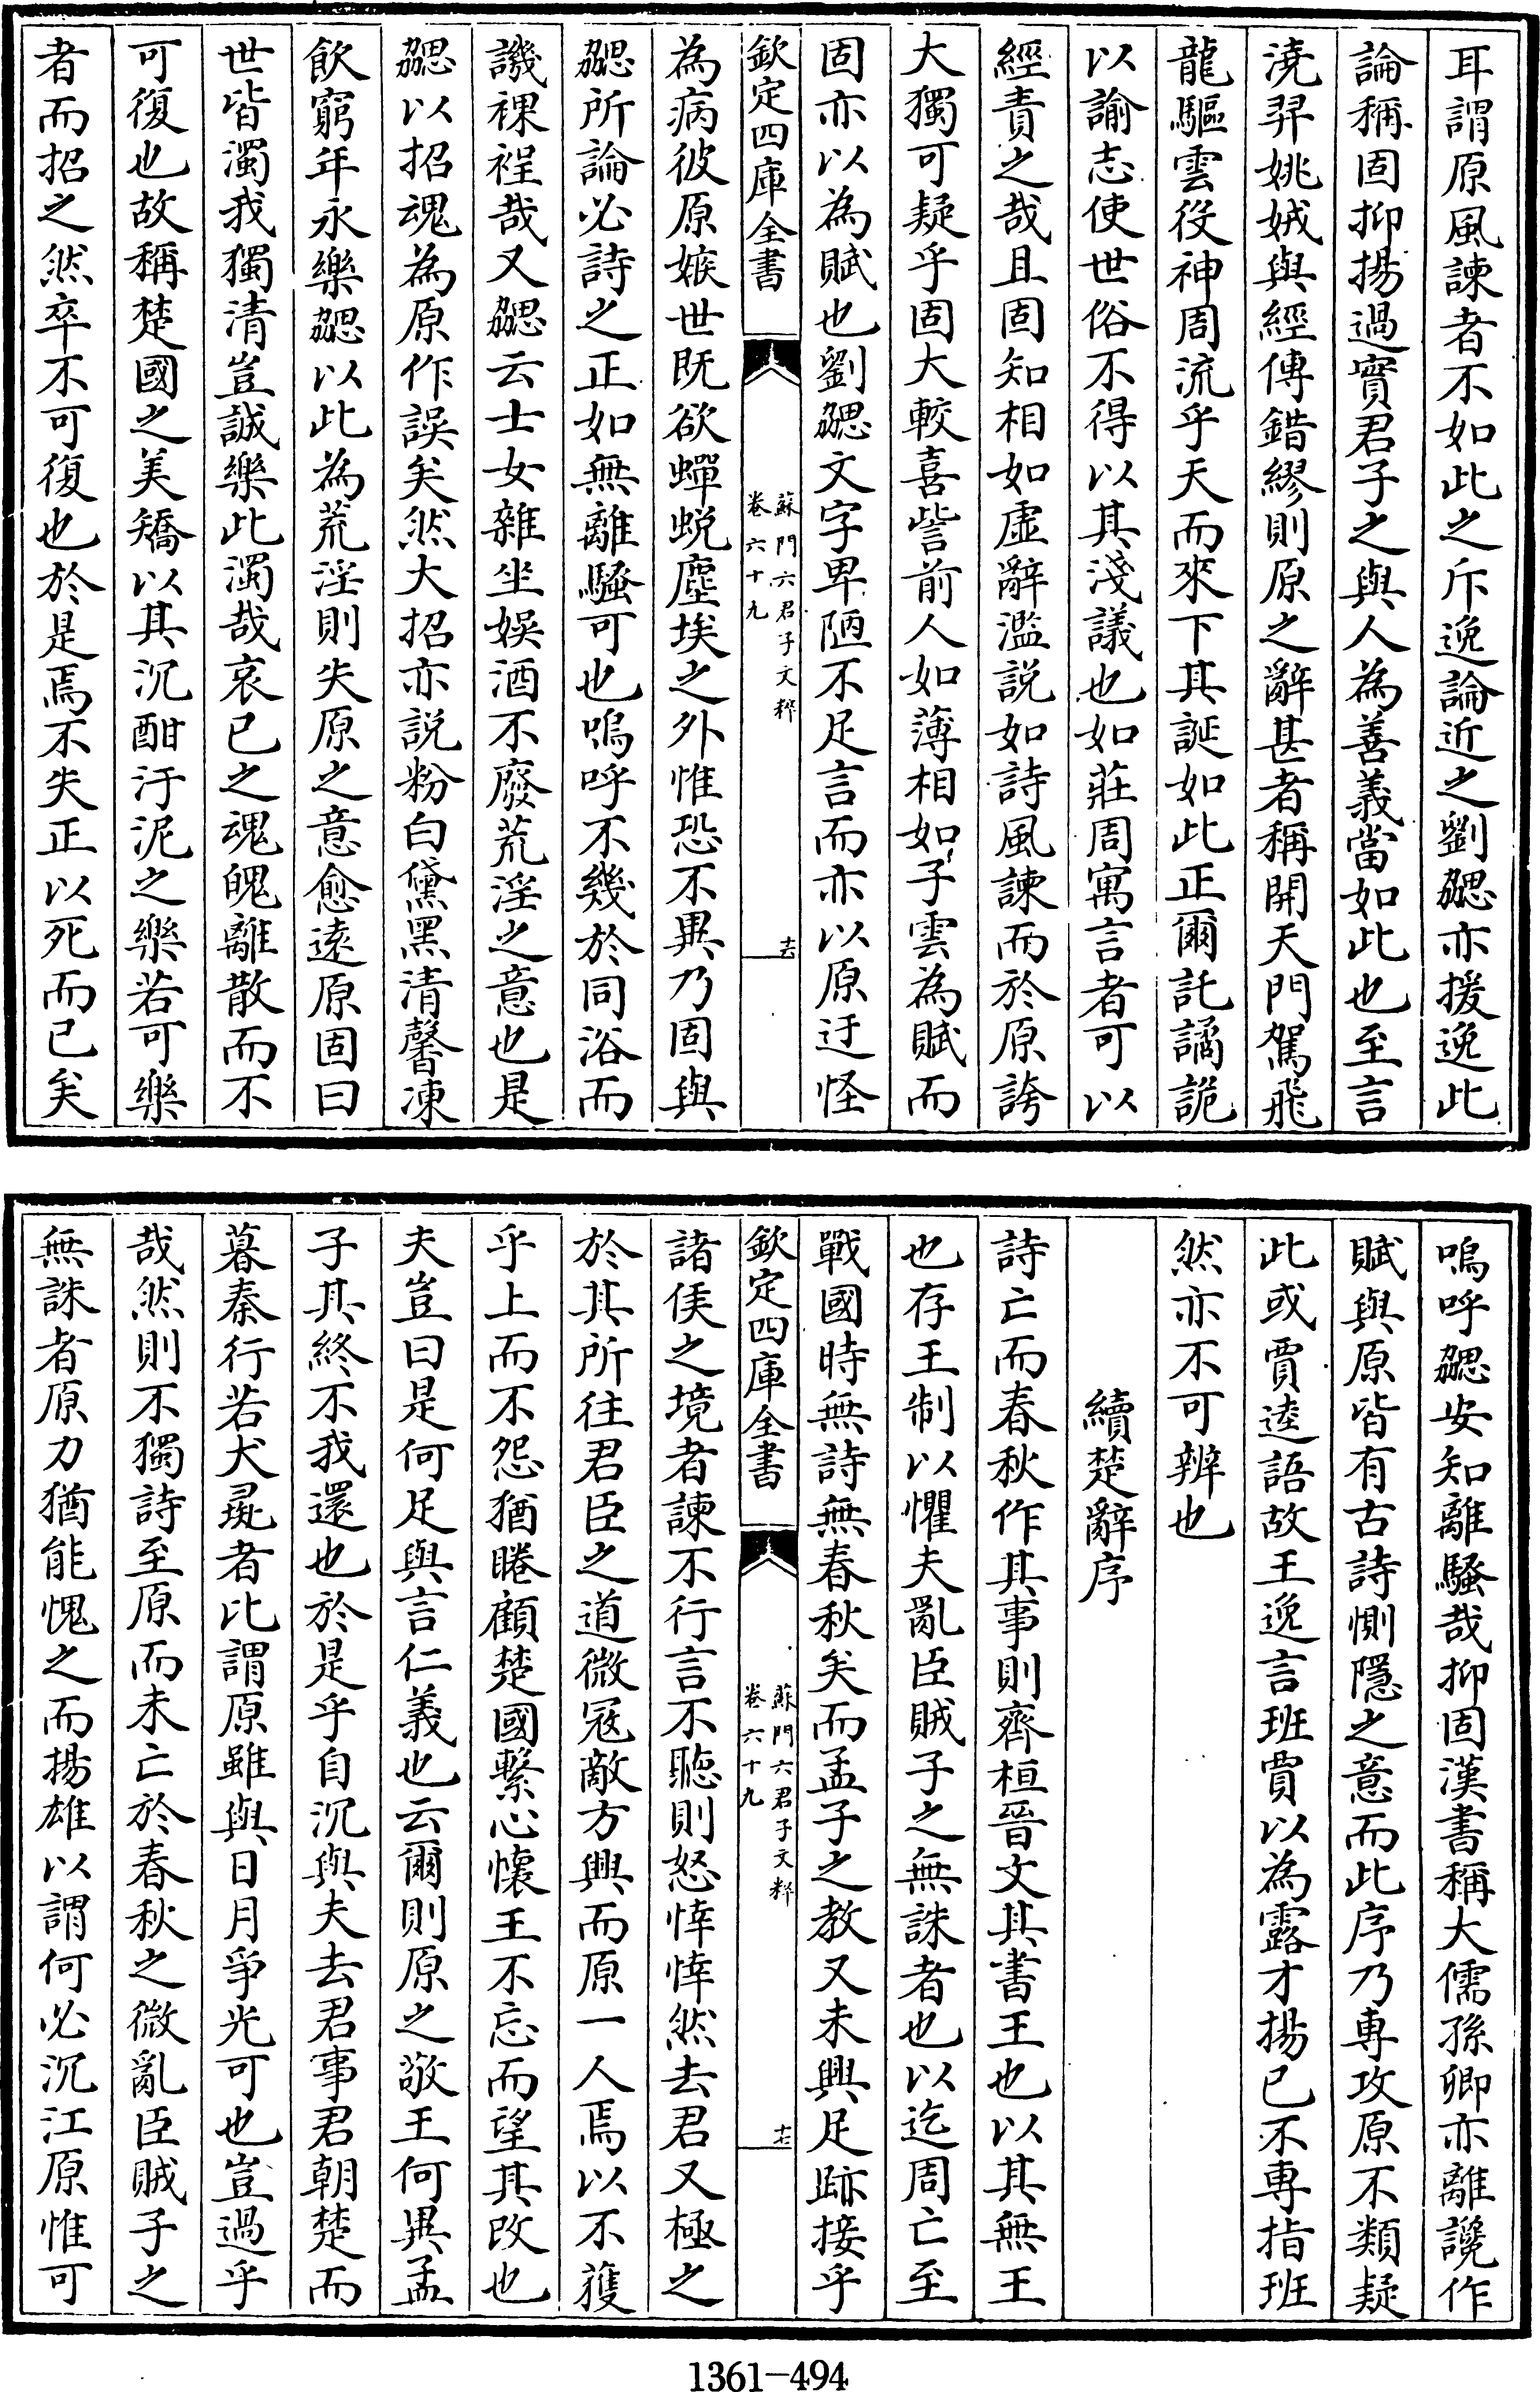 耳謂原風諫者不如此之斥逸論近之劉勰亦援逸此
論稱固抑揚過實君子之與人為善義當如此也至言
澆羿姚娀與經傳錯繆則原之辭甚者稱開天門駕飛
龍驅雲役神周流乎天而來下其誕如此正爾託譎詭
以諭志使世俗不得以其淺議也如莊周寓言者可以
經責之哉且固知相如虛辭濫説如詩風諫而於原誇
大獨可疑乎固大較喜訾前人如薄相如子雲為賦而
固亦以為賦也劉勰文字卑陋不足言而亦以原迂怪
欽定四庫全書
蘇門六君子文粹
卷六十九
十六
為病彼原嫉世既欲蟬蛻塵埃之外惟恐不異乃固與
勰所論必詩之正如無離騷可也嗚呼不幾於同浴而
譏裸裎哉又勰云士女雜坐娛酒不廢荒淫之意也是
勰以招魂為原作誤矣然大招亦説粉白黛黑清馨凍
飲窮年永樂勰以此為荒淫則失原之意愈遠原固曰
世皆濁我獨清豈誠樂此濁哉哀已之魂魄離散而不
可復也故稱楚國之美矯以其沉酣汙泥之樂若可樂
者而招之然卒不可復也於是焉不失正以死而已矣
嗚呼勰安知離騷哉抑固漢書稱大儒孫卿亦離讒作
賦與原皆有古詩惻隱之意而此序乃專攻原不類疑
此或賈逵語故王逸言班賈以為露才揚已不專指班
然亦不可辨也
續楚辭序
詩亡而春秋作其事則齊桓晉文其書王也以其無王
也存王制以懼夫亂臣賊子之無誅者也以迄周亡至
戰國時無詩無春秋矣而孟子之教又未興足跡接乎
欽定四庫全書
蘇門六君子文粹
卷六十九
十七
諸侯之境者諫不行言不聽則怒悻悻然去君又極之
於其所往君臣之道微冦敵方興而原一人焉以不獲
乎上而不怨猶睠顧楚國繫心懷王不忘而望其改也
夫豈曰是何足與言仁義也云爾則原之敬王何異孟
子其終不我還也於是乎自沉與夫去君事君朝楚而
暮秦行若犬彘者比謂原雖與日月爭光可也豈過乎
哉然則不獨詩至原而未亡於春秋之微亂臣賊子之
無誅者原力猶能愧之而揚雄以謂何必沉江原惟可
1361-494